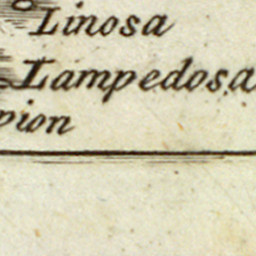 Linosa
Lampedosa
pion